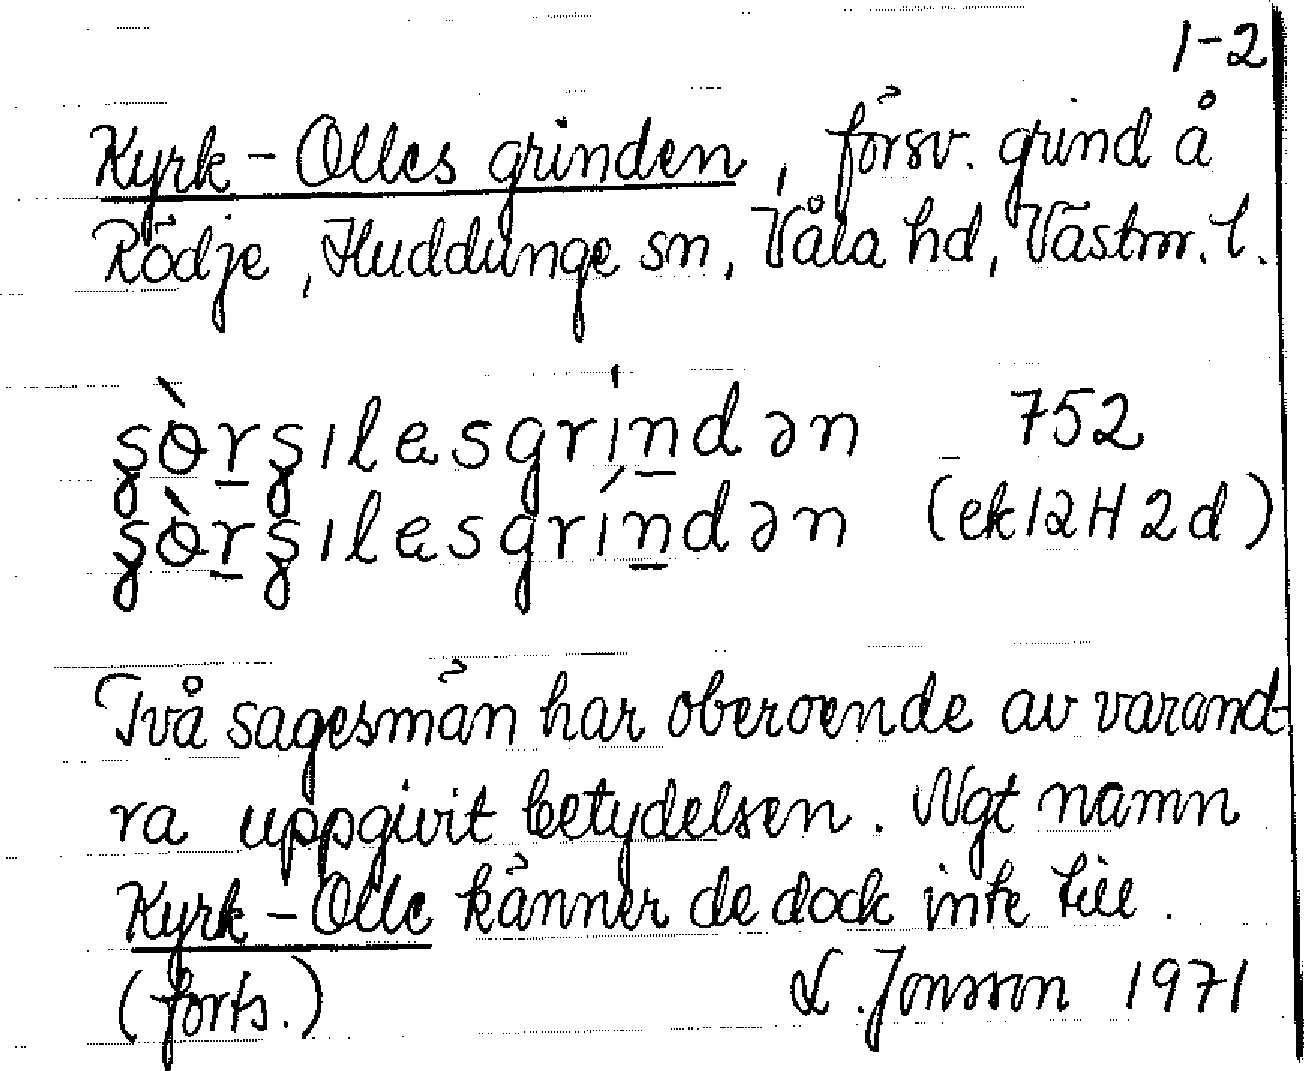 1-2
Kyrk-Olles grinden, försv. grind å
Rödje, Huddunge sn, Våla hd, Västmr. l.
752
(ek 12H2d)
Två sagesmän har oberoende av varand-
ra uppgivit betydelsen. Ngt namn
Kyrk-Olle känner de dock inte till.
(forts.) L. Jonsson 1971